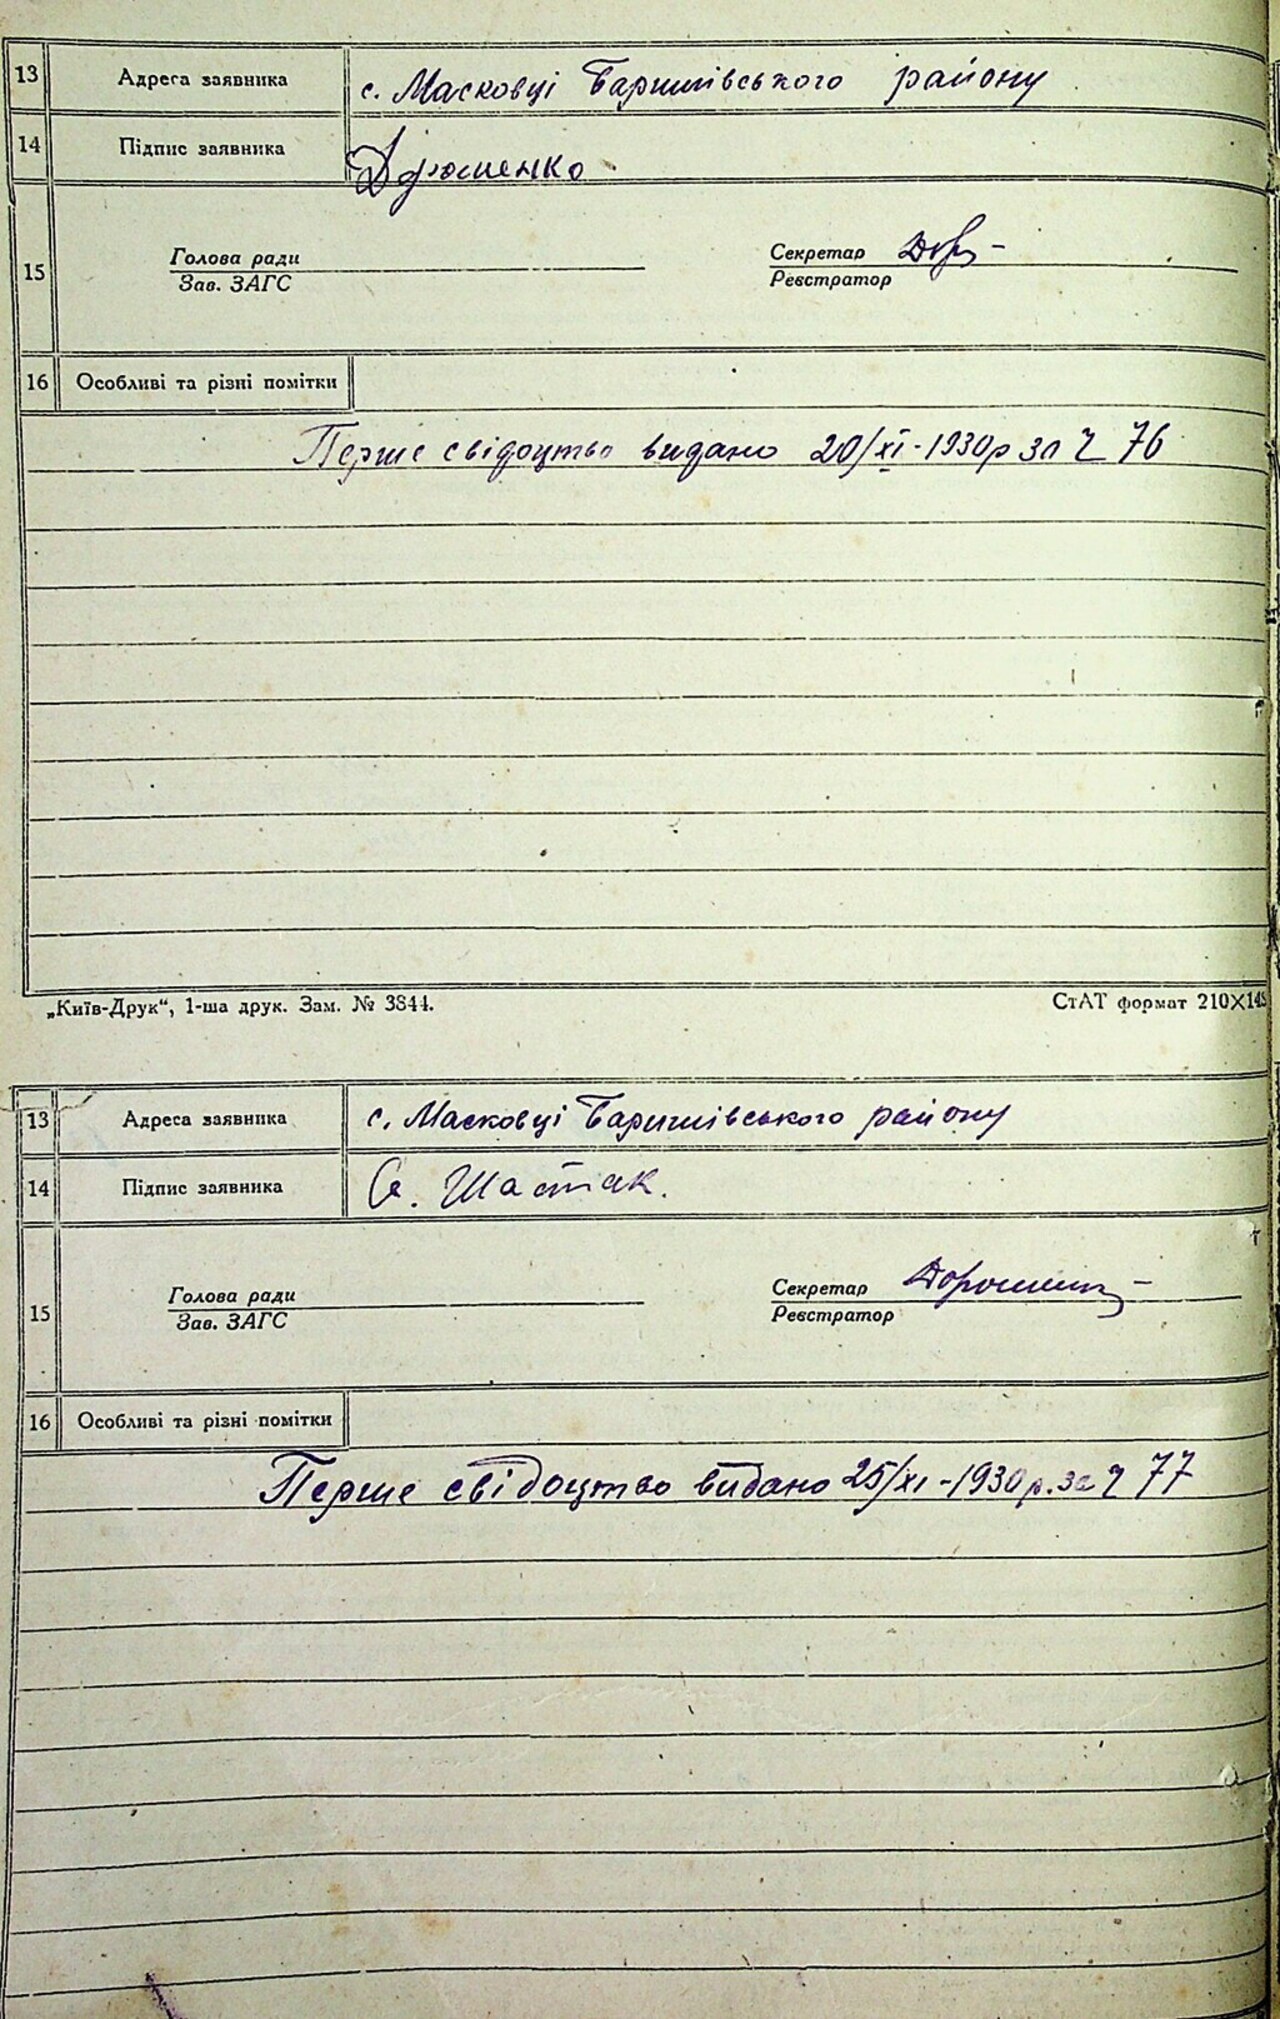 13 Адреса заявника с. Масковці Баришівського району
14 Підпис заявника
15 Голова ради Секретар
Зав. ЗАГС Реєстратор
16 Особливі та різні помітки
Перше свідоцтво видано 20/XI-1930р за Ч 76
„Київ-Друк“, 1-ша друк. Зам. № 3844. СтАТ формат 210X148
13 Адреса заявника с. Масковці Баришівського району
14 Підпис заявника Шастак.
15 Голова ради Секретар
Зав. ЗАГС Реєстратор
16 Особливі та різні помітки
Перше свідоцтво видано 25/XI-1930р. за Ч 77